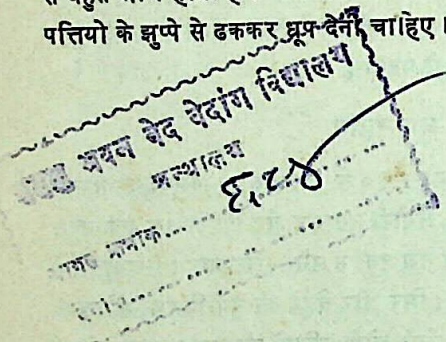 पत्तियो के झुप्पे से ढककर धूप देनी चाहिए।
भवन वेद वेदांग विद्यालय
ग्रन्थालय
क्रमांक......६८४